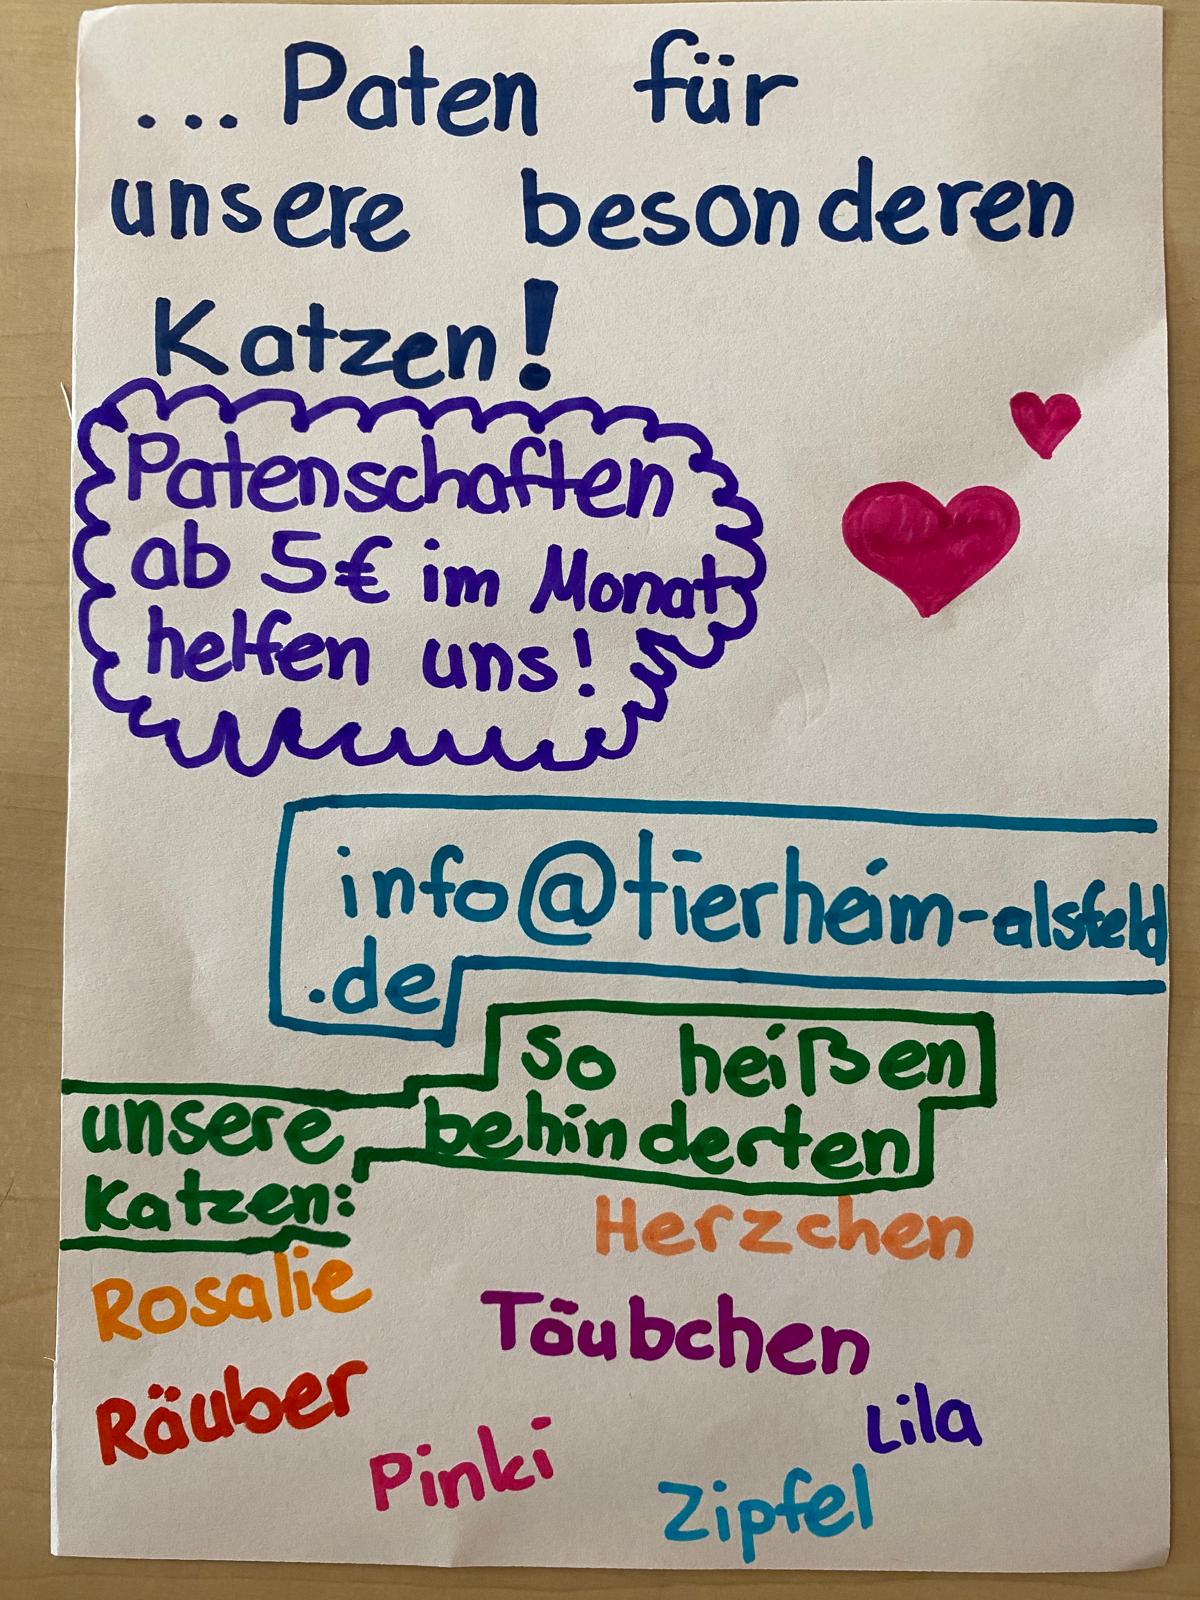 ... Paten für
unsere besonderen
Katzen!
Patenschaften
ab 5€ im Monat
helfen uns!
info@tierheim-alsfeld
.de
So heißen
unsere behinderten
Katzen:
Herzchen
Rosalie
Täubchen
Räuber
Lila
Pinki
Zipfel